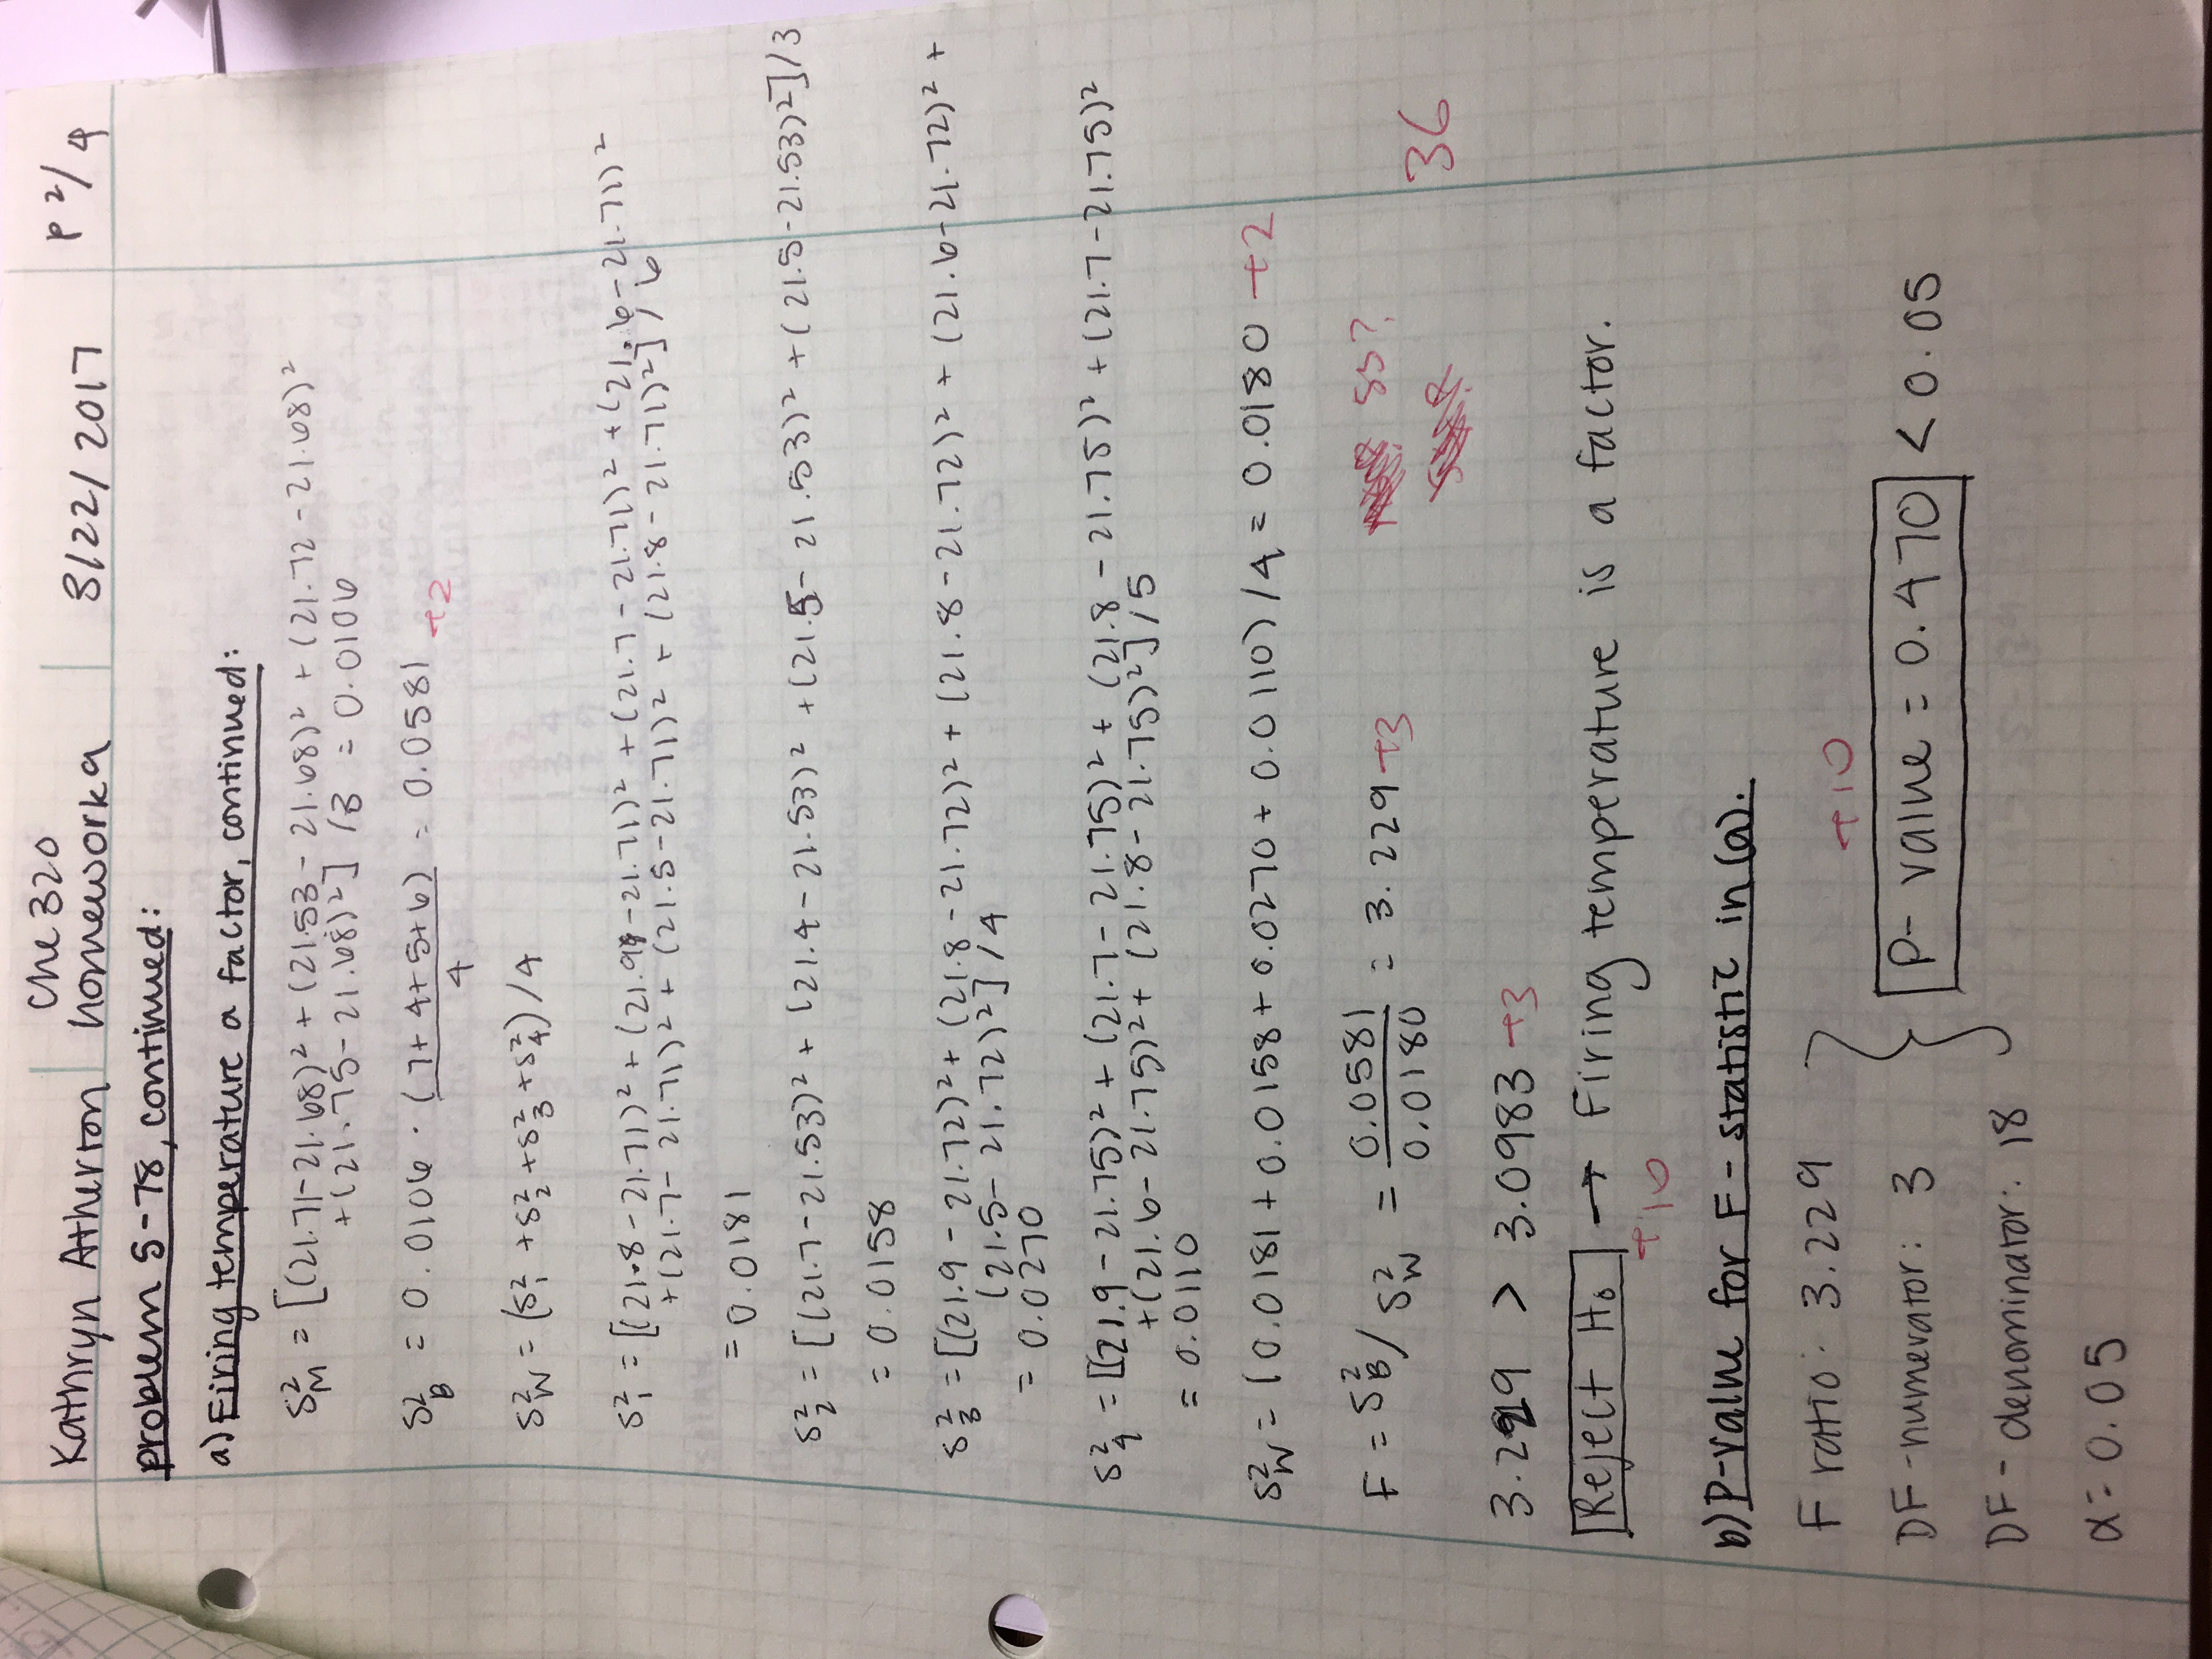 Kathryn Atherton
Che 320
homework a
8/22/2017
P 2/4
problem 5-78, continued:
a) Firing temperature a factor, continued:
S²_M = [(21.71-21.68)² + (21.53 - 21.68)² + (21.72 - 21.68)²
+(21.75-21.68)²] /3 = 0.0106
S²_B = 0.0106 · (7+4+5+6)/4 = 0.0581 +2
S²_W = (S²_1 + S²_2 + S²_3 + S²_4)/4
S²_1 = [(21.8-21.71)² + (21.9-21.71)² + (21.7-21.71)² + (21.6-21.71)²
+(21.7-21.71)² + (21.5-21.71)² + (21.8-21.71)²]/6
= 0.0181
S²_2 = [(21.7-21.53)² + (21.4-21.53)² + (21.5-21.53)² + (21.5-21.53)²]/3
= 0.0158
S²_3 = [(21.9-21.72)² + (21.8-21.72)² + (21.8-21.72)² + (21.6-21.72)² +
(21.5-21.72)²]/4
= 0.0270
S²_4 = [(21.9-21.75)² + (21.7-21.75)² + (21.8-21.75)² + (21.7-21.75)²
+(21.6-21.75)² + (21.8-21.75)²]/5
= 0.0110
S²_W = (0.0181 + 0.0158 + 0.0270 + 0.0110)/4 = 0.0180 +2
F = S²_B / S²_W = 0.0581/0.0180 = 3.229 +3
SS?
36
3.229 > 3.0983 +3
Reject H₀ → Firing temperature is a factor.
+10
b) P-value for F-statistic in (a).
F ratio: 3.229
+10
DF-numerator: 3
P-value = 0.470 < 0.05
DF-denominator: 18
α = 0.05